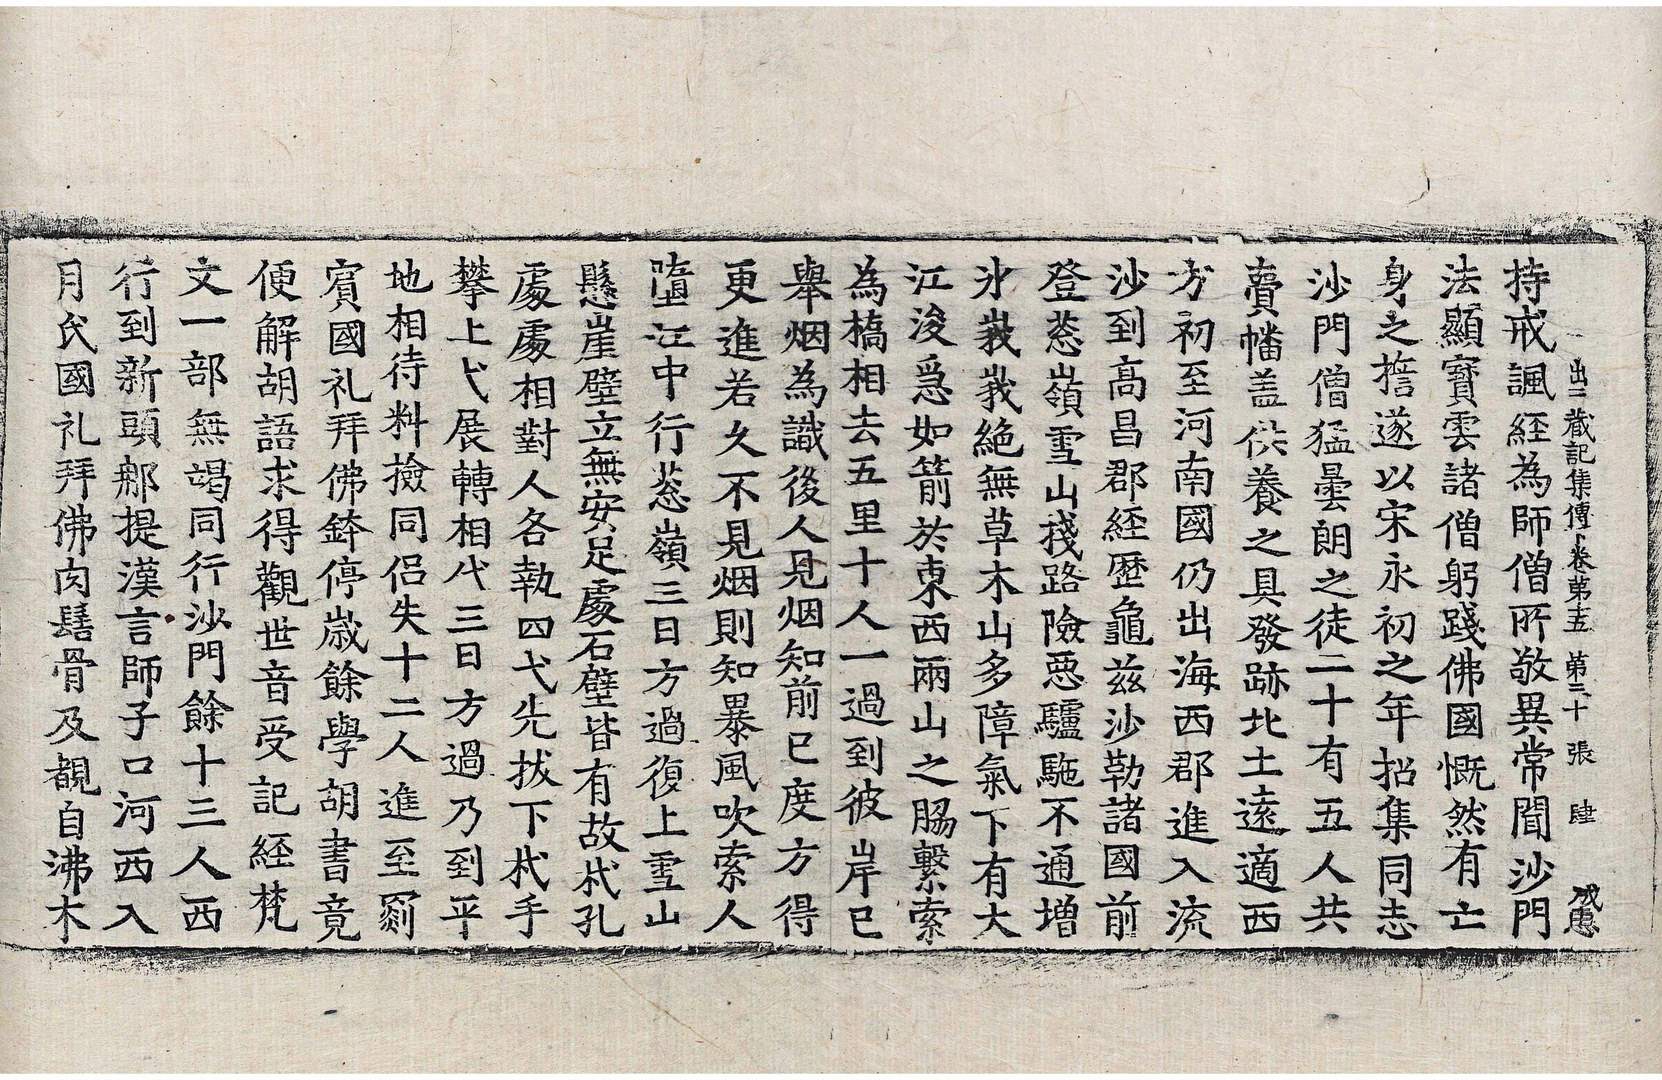 出三藏記集傳卷第十五 第三十張 肆
持戒諷経為師僧所敬異常聞沙門
法顯寳雲諸僧躬踐佛國慨然有亡
身之擔遂以宋永初之年招集同志
沙門僧猛曇朗之徒二十有五人共
賷幡盖供養之具發跡北土遠適西
方初至河南國仍出海西郡進入流
沙到髙昌郡経歷龜茲沙勒諸國前
登葱嶺雪山棧路險惡驢駞不通增
氷峩峩絶無草木山多障氣下有大
江浚急如箭於東西兩山之脇繫索
為橋相去五里十人一過到彼岸已
舉烟為識後人見烟知前已度方得
更進若久不見烟則知暴風吹索人
墮江中行葱嶺三日方過復上雪山
懸崖壁立無安足處石壁皆有故杙孔
處處相對人各執四弋先拔下杙手
攀上弋展轉相代三日方過乃到平
地相待料撿同侣失十二人進至罽
賓國礼拜佛鉢停歲餘學胡書竟
便解胡語求得觀世音受記経梵
文一部無竭同行沙門餘十三人西
行到新頭那提漢言師子口河西入
月氏國礼拜佛肉髻骨及覩自沸木